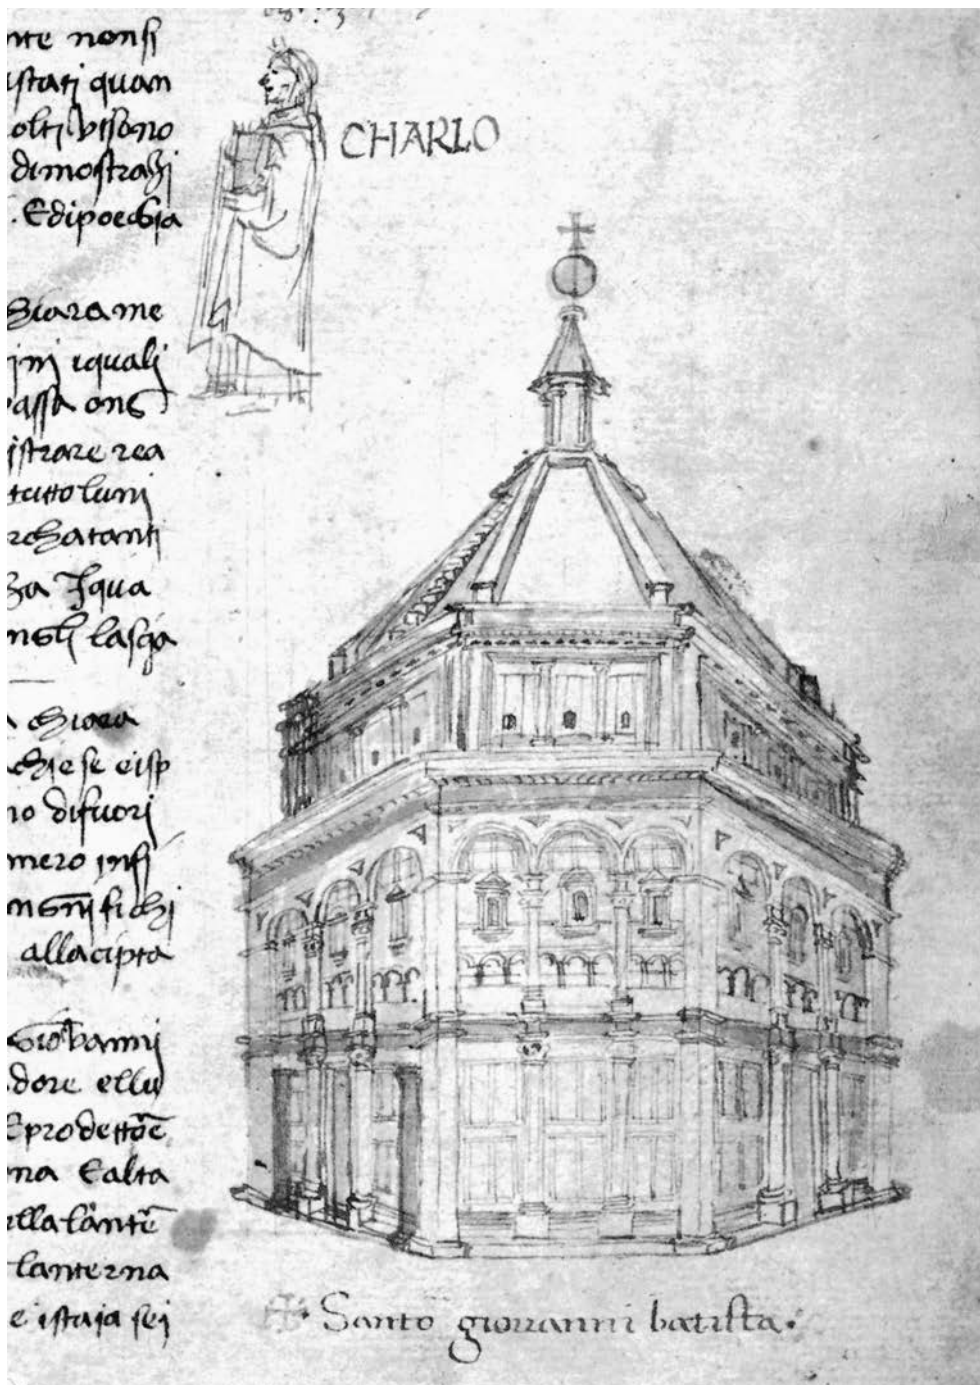 CHARLO
nte nonsi
istati quan
olti visono
dimostrazj
. Edipoechia
chiarame
inj iquali
passa ong
istrare rea
tutto lumj
rchatanti
za Iqua
lascja
a chiara
chiese eisp
no difuorj
mero insi
allacipta
Giovannj
dore ellu
Eprodetto e
na Ealta
ella lante
lanterna
e istaia sej
✠ · Santo giovanni batista ·